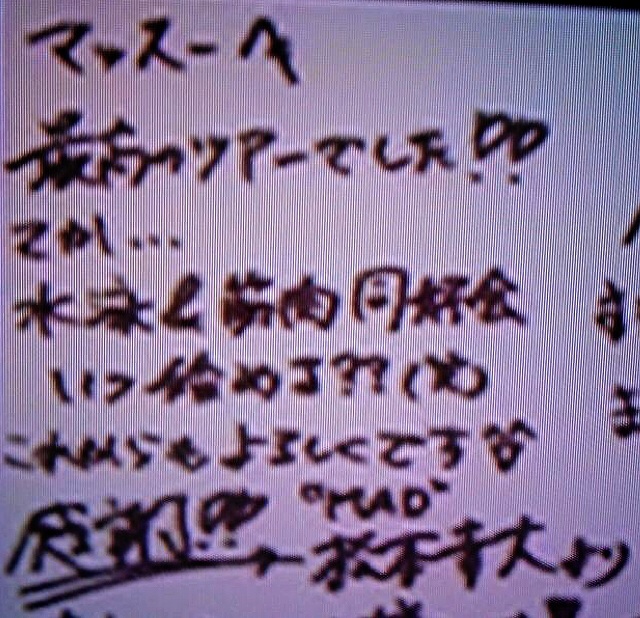 マッスーへ
最高のツアーでした!!
てか...
水泳と筋肉同好会
いつ始める??(笑)
これからもよろしくです
感謝!! "MAD"
松本幸大より